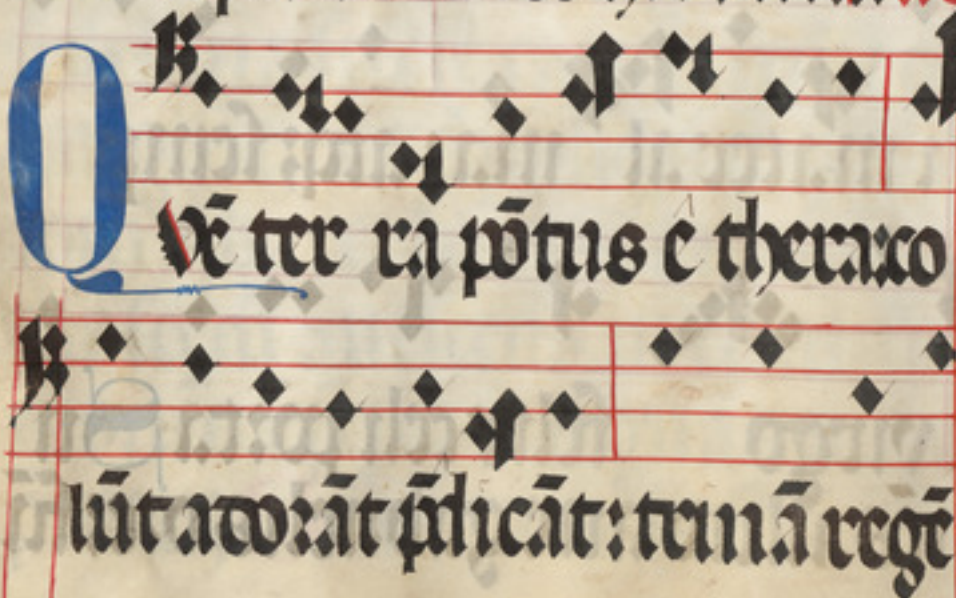 QVē ter ra pōtus ethera: co
lūt adorāt p̄dicāt: trinā regē